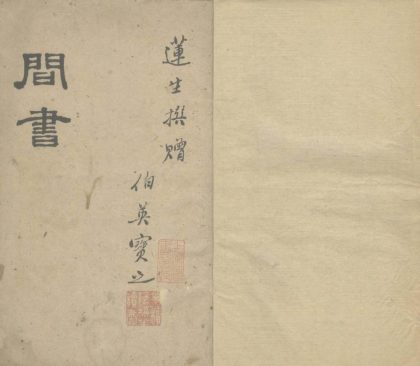 間書
蓮生撰贈
伯英寶之